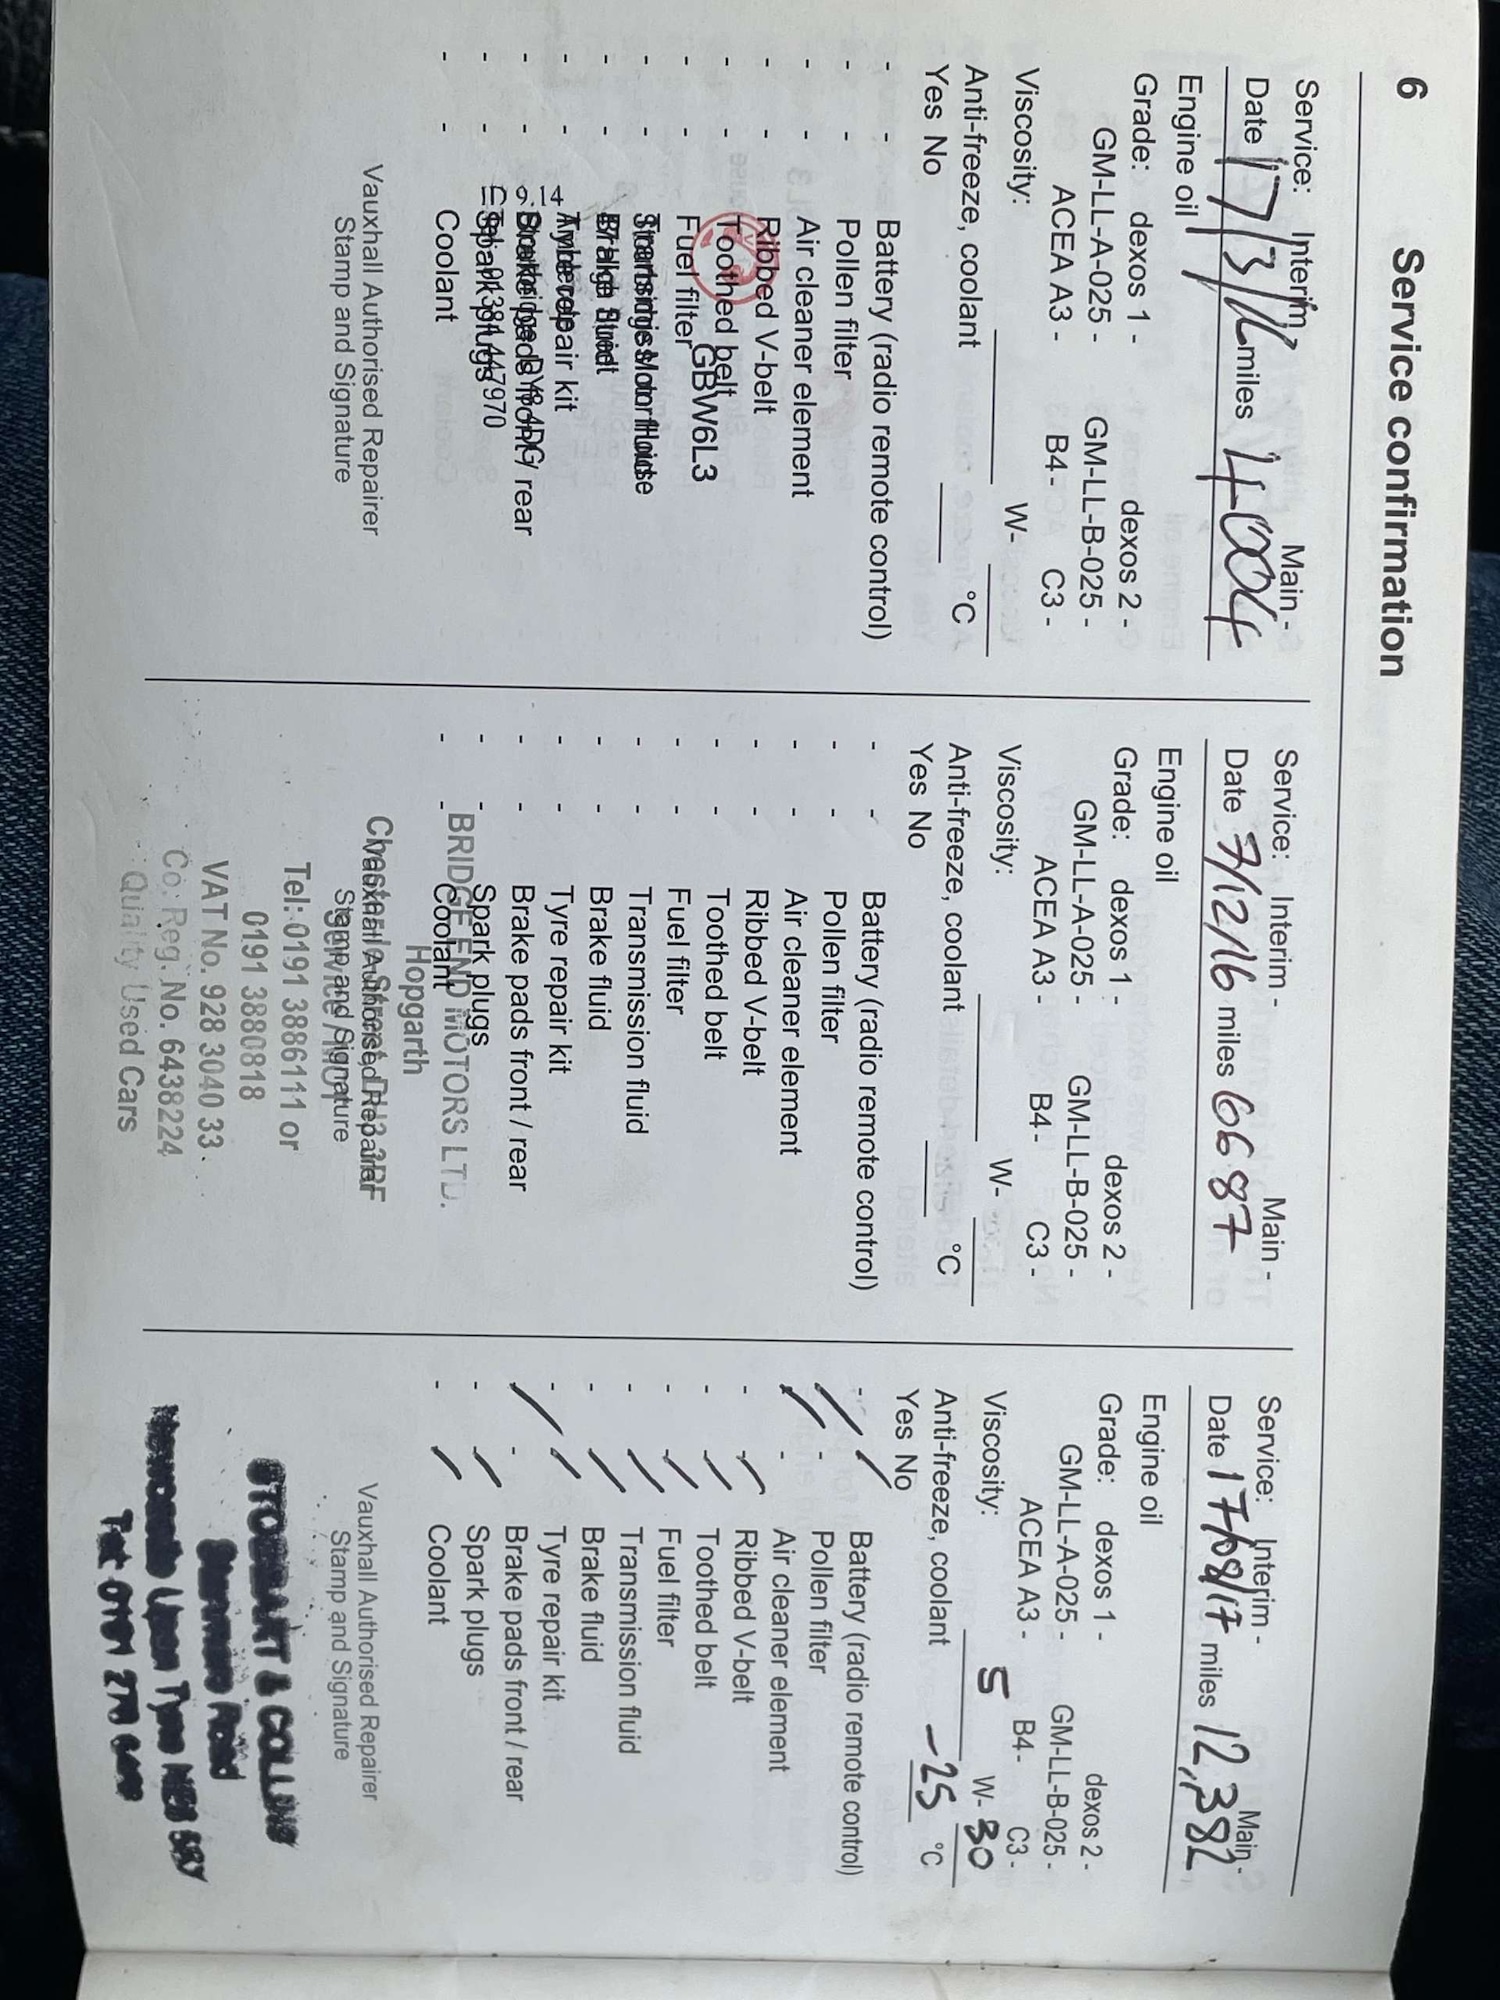 6 Service confirmation
Service: Interim - Main -
Date 17/3/16 miles 4004
Engine oil
Grade: dexos 1 - dexos 2 -
GM-LL-A-025 - GM-LL-B-025 -
ACEA A3 - B4 - C3 -
Viscosity: W-
Anti-freeze, coolant °C
Yes No
- - Battery (radio remote control)
- - Pollen filter
- - Air cleaner element
- - Ribbed V-belt
- - Toothed belt
- - Fuel filter
GBW6L3
- - Transmission fluid
- - Brake fluid
- - Tyre repair kit
- - Brake pads front / rear
- - Spark plugs
Tel: 01384 447970
- - Coolant
Vauxhall Authorised Repairer
Stamp and Signature
Service: Interim - Main -
Date 7/12/16 miles 6687
Engine oil
Grade: dexos 1 - dexos 2 -
GM-LL-A-025 - GM-LL-B-025 -
ACEA A3 - B4 - C3 -
Viscosity: W-
Anti-freeze, coolant °C
Yes No
- - Battery (radio remote control)
- - Pollen filter
- - Air cleaner element
- - Ribbed V-belt
- - Toothed belt
- - Fuel filter
- - Transmission fluid
- - Brake fluid
- - Tyre repair kit
- - Brake pads front / rear
- - Spark plugs
- - Coolant
BRIDGE END MOTORS LTD.
Hopgarth
Vauxhall Authorised Repairer
Stamp and Signature
Tel: 0191 3886111 or
0191 3880818
VAT No. 928 3040 33
Co. Reg. No. 6438224
Quality Used Cars
Service: Interim - Main -
Date 17/08/17 miles 12,382
Engine oil
Grade: dexos 1 - dexos 2 -
GM-LL-A-025 - GM-LL-B-025 -
ACEA A3 - B4 - C3 -
Viscosity: 5 W- 30
Anti-freeze, coolant -25 °C
Yes No
- / Battery (radio remote control)
/ - Pollen filter
/ - Air cleaner element
- / Ribbed V-belt
- / Toothed belt
- / Fuel filter
- / Transmission fluid
- / Brake fluid
- / Tyre repair kit
/ - Brake pads front / rear
- / Spark plugs
- / Coolant
Vauxhall Authorised Repairer
Stamp and Signature
STODDART & COLLINS
Road
Newcastle Upon Tyne NE6 5RY
Tel: 0191 276